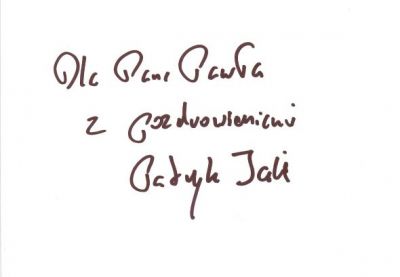 Dla Pana Pawła
z pozdrowieniami
Patryk Jaki